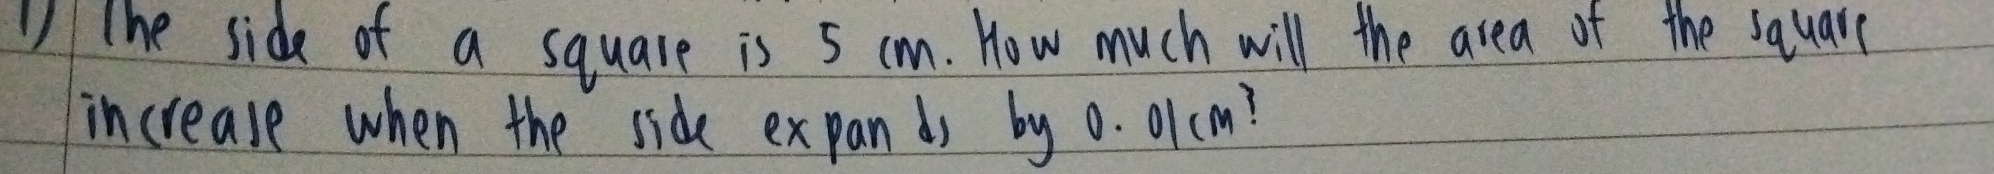 1) The side of a square is 5 cm. How much will the area of the square
increase when the side expands by 0.01cm?